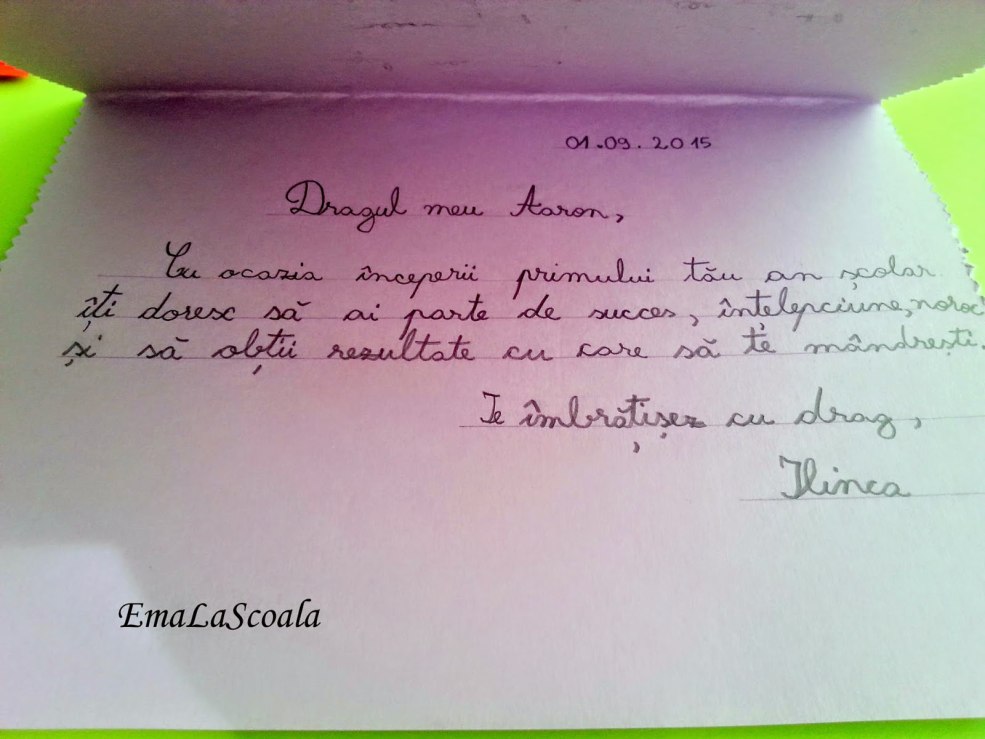 01.09.2015
Dragul meu Aaron,
Cu ocazia începerii primului tău an școlar
îți doresc să ai parte de succes, înțelepciune, noroc
și să obții rezultate cu care să te mândrești.
Te îmbrățișez cu drag,
Ilinca
EmaLaScoala